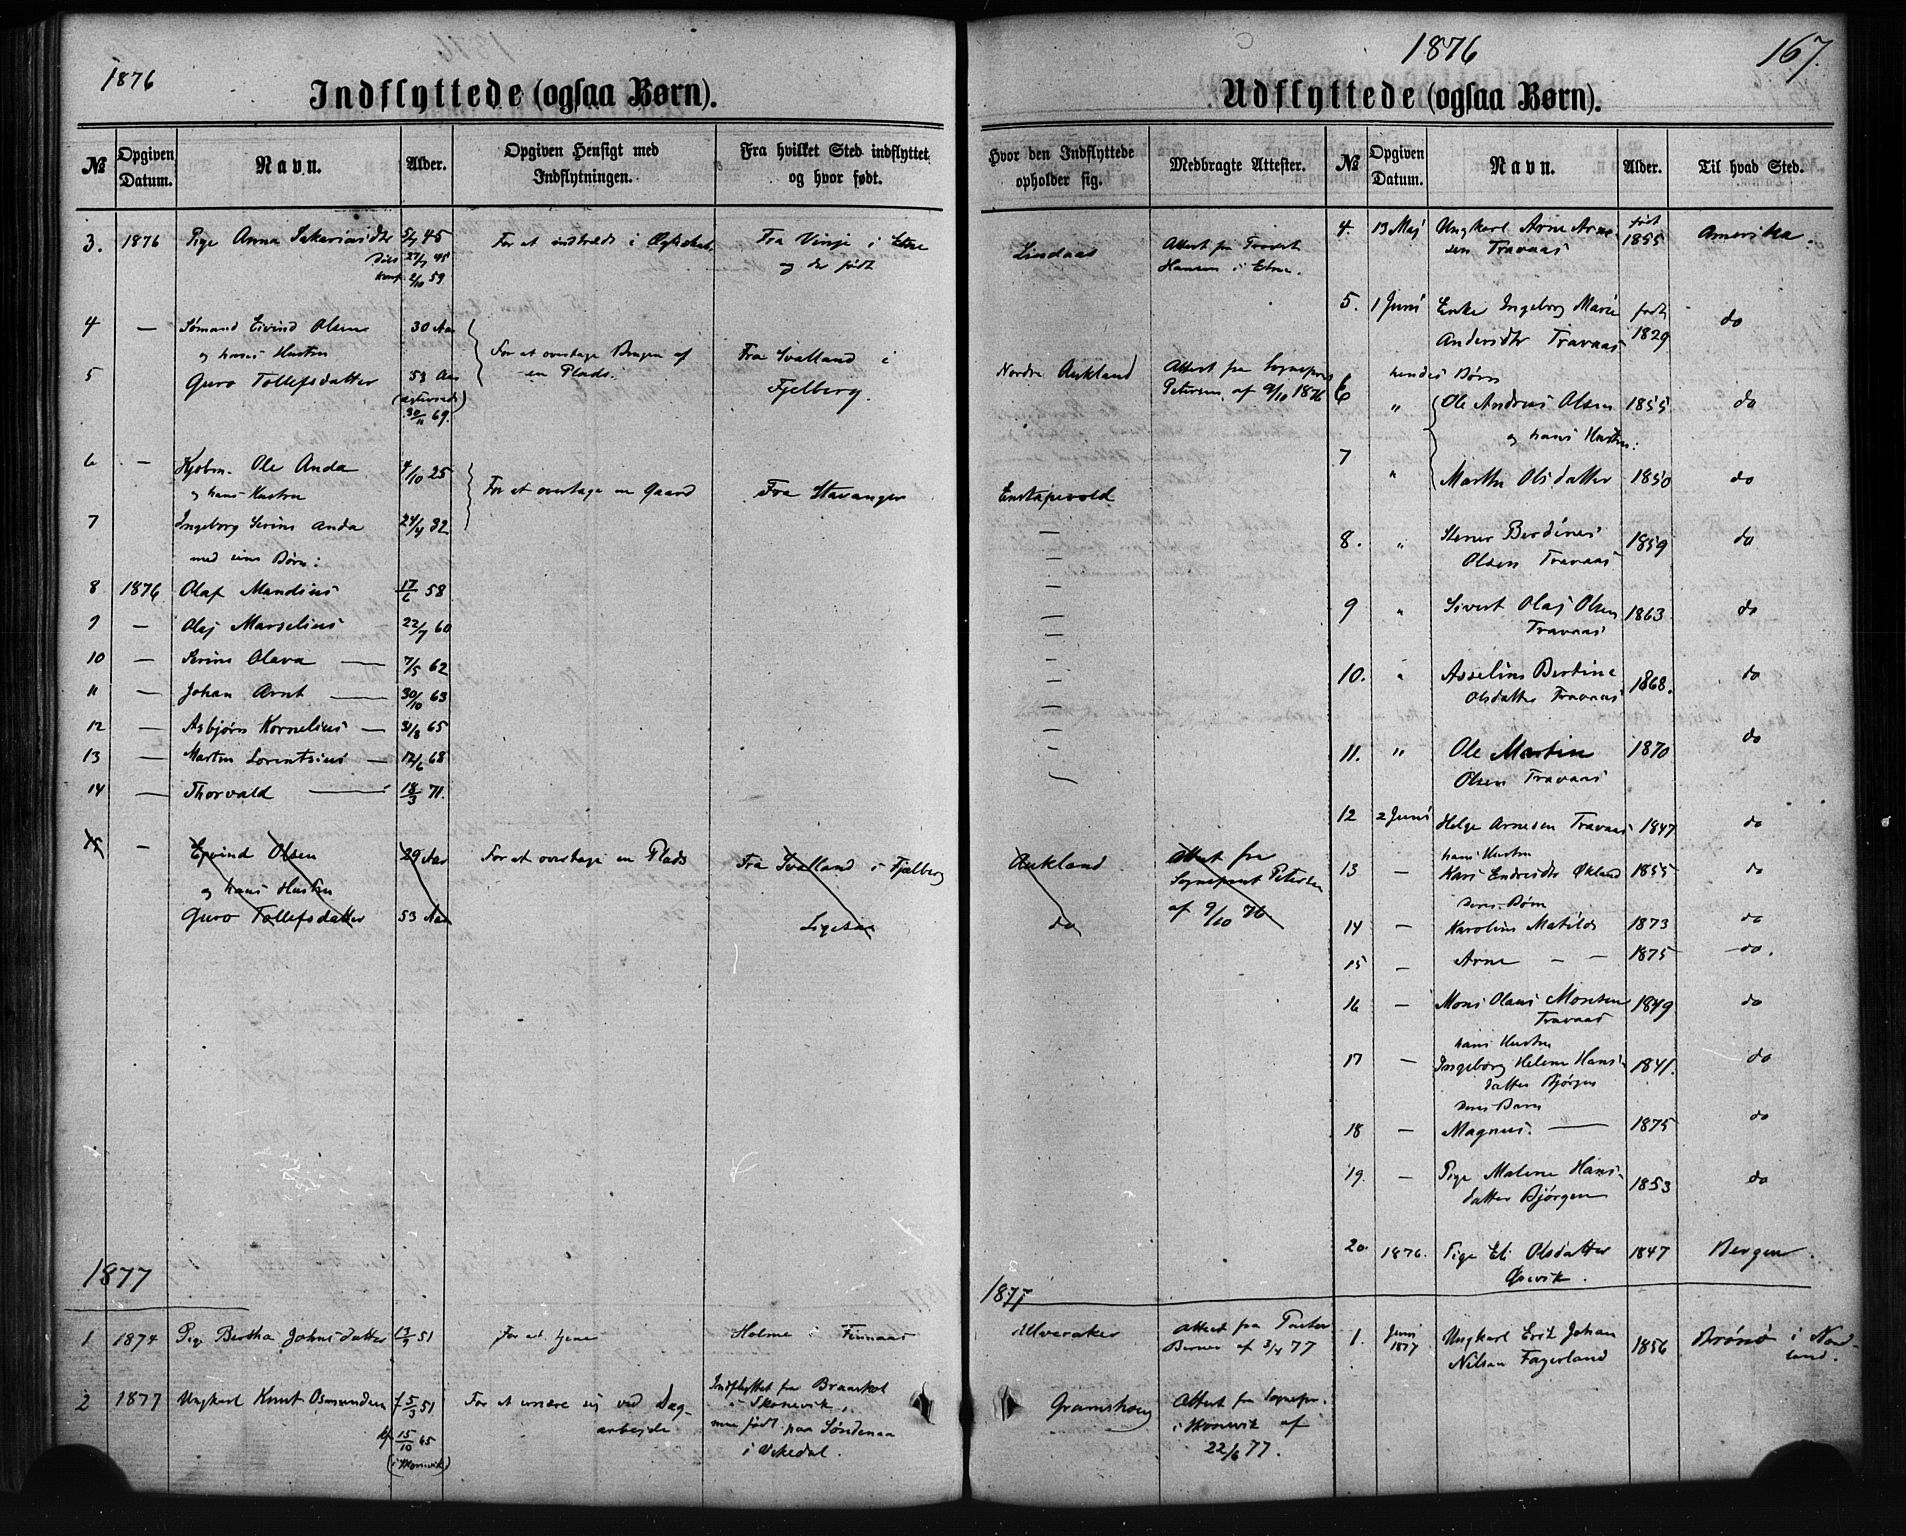 1876
Indflyttede (ogsaa Børn).
№ Opgiven Datum. Navn. Alder. Opgiven Hensigt med Indflytningen. Fra hvilket Sted indflyttet og hvor født.
3. 1876 Pige Anna Sakariasdtr 5/7 45 For at indtræde i Ægteskab. Fra Vinje i Etne
døbt 27/7 45 og der født
konf. 2/10 59
4 — Sømand Eivind Olsen 30 Aar
og hans Hustru For at overtage Brugen af Fra Svalland i
5 Guro Tollefsdatter 53 Aar en Plads. Fjelberg.
30/11 69.
6 — Kjøbm. Ole Anda 4/10 25
og hans Hustru For at overtage en Gaard Fra Stavanger
7 Ingeborg Serine Anda 24/4 32
med sine Børn:
8 1876 Olaf Mandius 17/6 58
9 — Olaj Marselius 22/7 60
10 — Serine Olava — 7/5 62
11 — Johan Arnt — 30/10 63
12 — Asbjørn Kornelius — 31/8 65
13 — Martin Lorentsius — 12/6 68
14 — Thorvald — 18/3 71.
15 — Ejvind Olsen 29 Aar For at overtage en Plads Fra Svalland i Fjelberg
og hans Hustru
Guro Tollefsdatter 53 Aar Ligesaa
1877
1 1874 Pige Bertha Johnsdatter 13/9 51 For at tjene Holme i Finnaas
2 1877 Ungkarl Knut Osmundsen f. 5/3 51 For at ernære sig ved Dag- Indflyttet fra Braaskot
i Skonevik,
kf. 15/10 65 arbejde men født paa Søndenaa
(i Skonevik) i Vikedal.
1876 167.
Udflyttede (ogsaa Børn).
Hvor den Indflyttede opholder sig. Medbragte Attester. № Opgiven Datum. Navn. Alder. Til hvad Sted.
Lindaas Attest fra Provst 4. 13 Maj Ungkarl Arne Arne- født 1855 Amerika.
Hansen i Etne. sen Travaas
5. 1 Juni Enke Ingeborg Marie født 1829 do
Andersdtr Travaas
Nordre Aukland Attest fra Sognepræst hendes Børn
Petersen af 9/10 1876 6 " Ole Andreas Olsen 1855 do
og hans Hustru:
Enstapevold 7 " Martha Olsdatter 1850 do
—
— 8. " Stener Berdines 1859 do
— Olsen Travaas
— 9 " Sivert Olaj Olsen 1863 do
— Travaas
— 10. " Asseline Bertine 1868. do
— Olsdatter Travaas
— 11. " Ole Martin 1870 do
— Olsen Travaas
12 2 Juni Helge Arnesen Travaas 1847 do
Aukland Attest fra hans Hustru
Sognepræst Petersen 13 — Kari Endresdtr Økland 1855 do
do af 9/10 76 Deres Børn
14 — Karoline Matilde 1873 do
15 — Arne — — 1875 do.
16 — Mons Olaus Monsen 1849 do
Travaas
hans Hustru
17 — Ingeborg Helene Hans- 1841. do
datter Bjørgen
Deres Barn
18 — Magnus. — 1875 do
19. — Pige Malene Hans- 1853 do
datter Bjørgen
20. 1876. Pige Eli Olsdatter 1847 Bergen.
1877
Ulveraker Attest fra Pastor 1. Juni 1877 Ungkarl Erik Johan 1856 Brønø i Nord-
Berner af 3/4 77 Nilsen Fagerland land.
Gramshoug Attest fra Sognepr.
i Skonevik af
22/6 77.